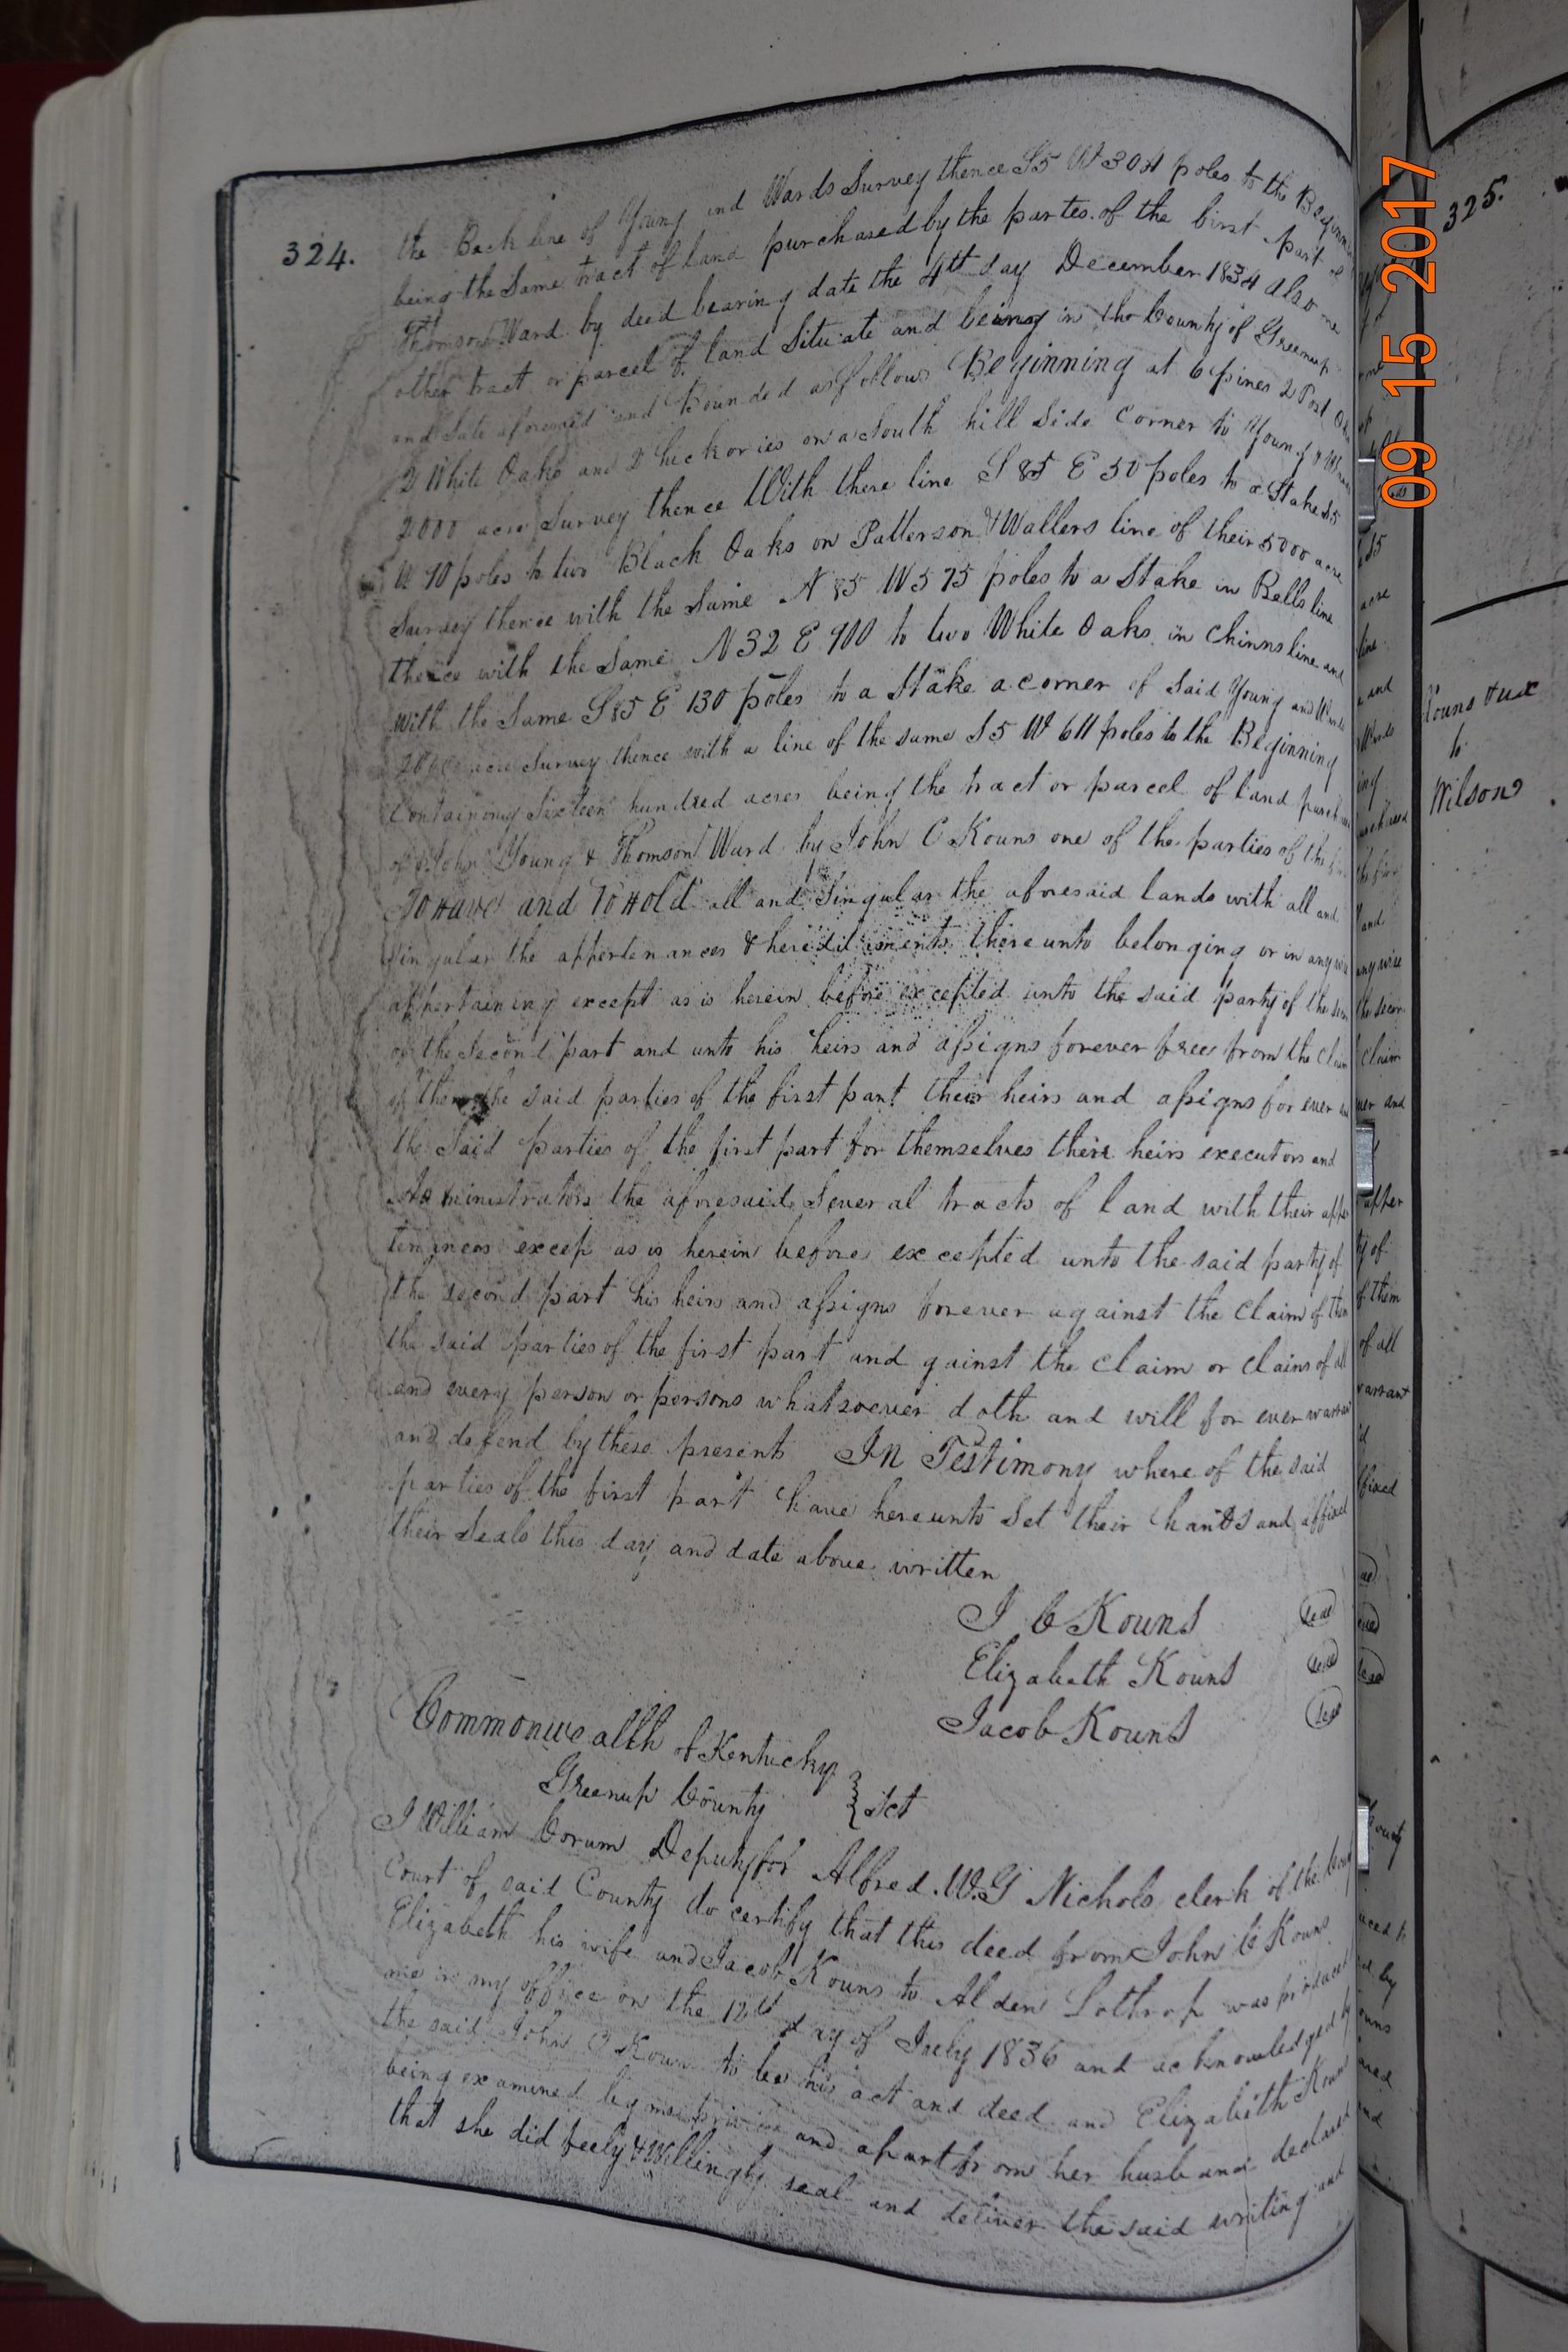 324.
the Back line of Young and Wards Survey thence S5 W 304 poles to the Beginni
being the Same tract of land purchased by the partes of the first part of
Thomson Ward by deed bearing date the 4th day December 1834 also one
other tract or parcel of land Situate and being in the County of Greenup
and State aforesaid and Bounded as follows Beginning at 6 pines 2 Post Oaks
2 White Oaks and 2 hickories on a South hill Side Corner to Young &
2000 acre Survey thence With there line S 85 E 50 poles to a Stake S5
W 90 poles to two Black Oaks on Patterson & Wallers line of their 5000 acre
Survey thence with the Same N 85 W 575 poles to a Stake in Bells line
thence with the Same N 32 E 900 to two White Oaks in Chinns line and
with the Same S 85 E 130 poles to a Stake a corner of Said Young and Wards
2000 acre Survey thence with a line of the same S 5 W 611 poles to the Beginning
Containing Sixteen hundred acres being the tract or parcel of land
of John Young & Thomson Ward by John C Kouns one of the parties of the
To Have and To Hold all and Singular the aforesaid lands with all and
Singular the appertenances & heredit iments there unto belonging or in any wise
appertaining except as is herein before excepted unto the said party of the
of the Second part and unto his heirs and assigns forever free from the Claim
of them the said parties of the first part their heirs and assigns for ever and
the Said parties of the first part for themselves there heirs executors and
Administrators the aforesaid Several tracts of land with their apper
tenances excep as is herein before excepted unto the said party of
the second part his heirs and assigns forever against the Claim of them
the said parties of the first part and gainst the claim or clains of all
and every person or persons whatsoever doth and will for ever warrant
and defend by these presents In Testimony where of the said
parties of the first part have hereunto Set their hands and affixed
their Seals this day and date above written
J C Kouns (seal)
Elizabeth Kouns (seal)
Jacob Kouns (seal)
Commonwealth of Kentucky
Greenup County } Sct
I William Corum Deputy for Alfred W.G Nichols clerk of the County
Court of said County do certify that this deed from John C Kouns
Elizabeth his wife and Jacob Kouns to Alden Lothrop was produced
me in my office on the 12th day of July 1836 and acknowledged by
the said John C Kouns to be his act and deed and Elizabeth Kouns
being examined by me privice and apart from her husband declared
that she did feely & Willingly seal and deliver the said writing and
09 15 2017
325.
Kouns & ux
to
Wilson